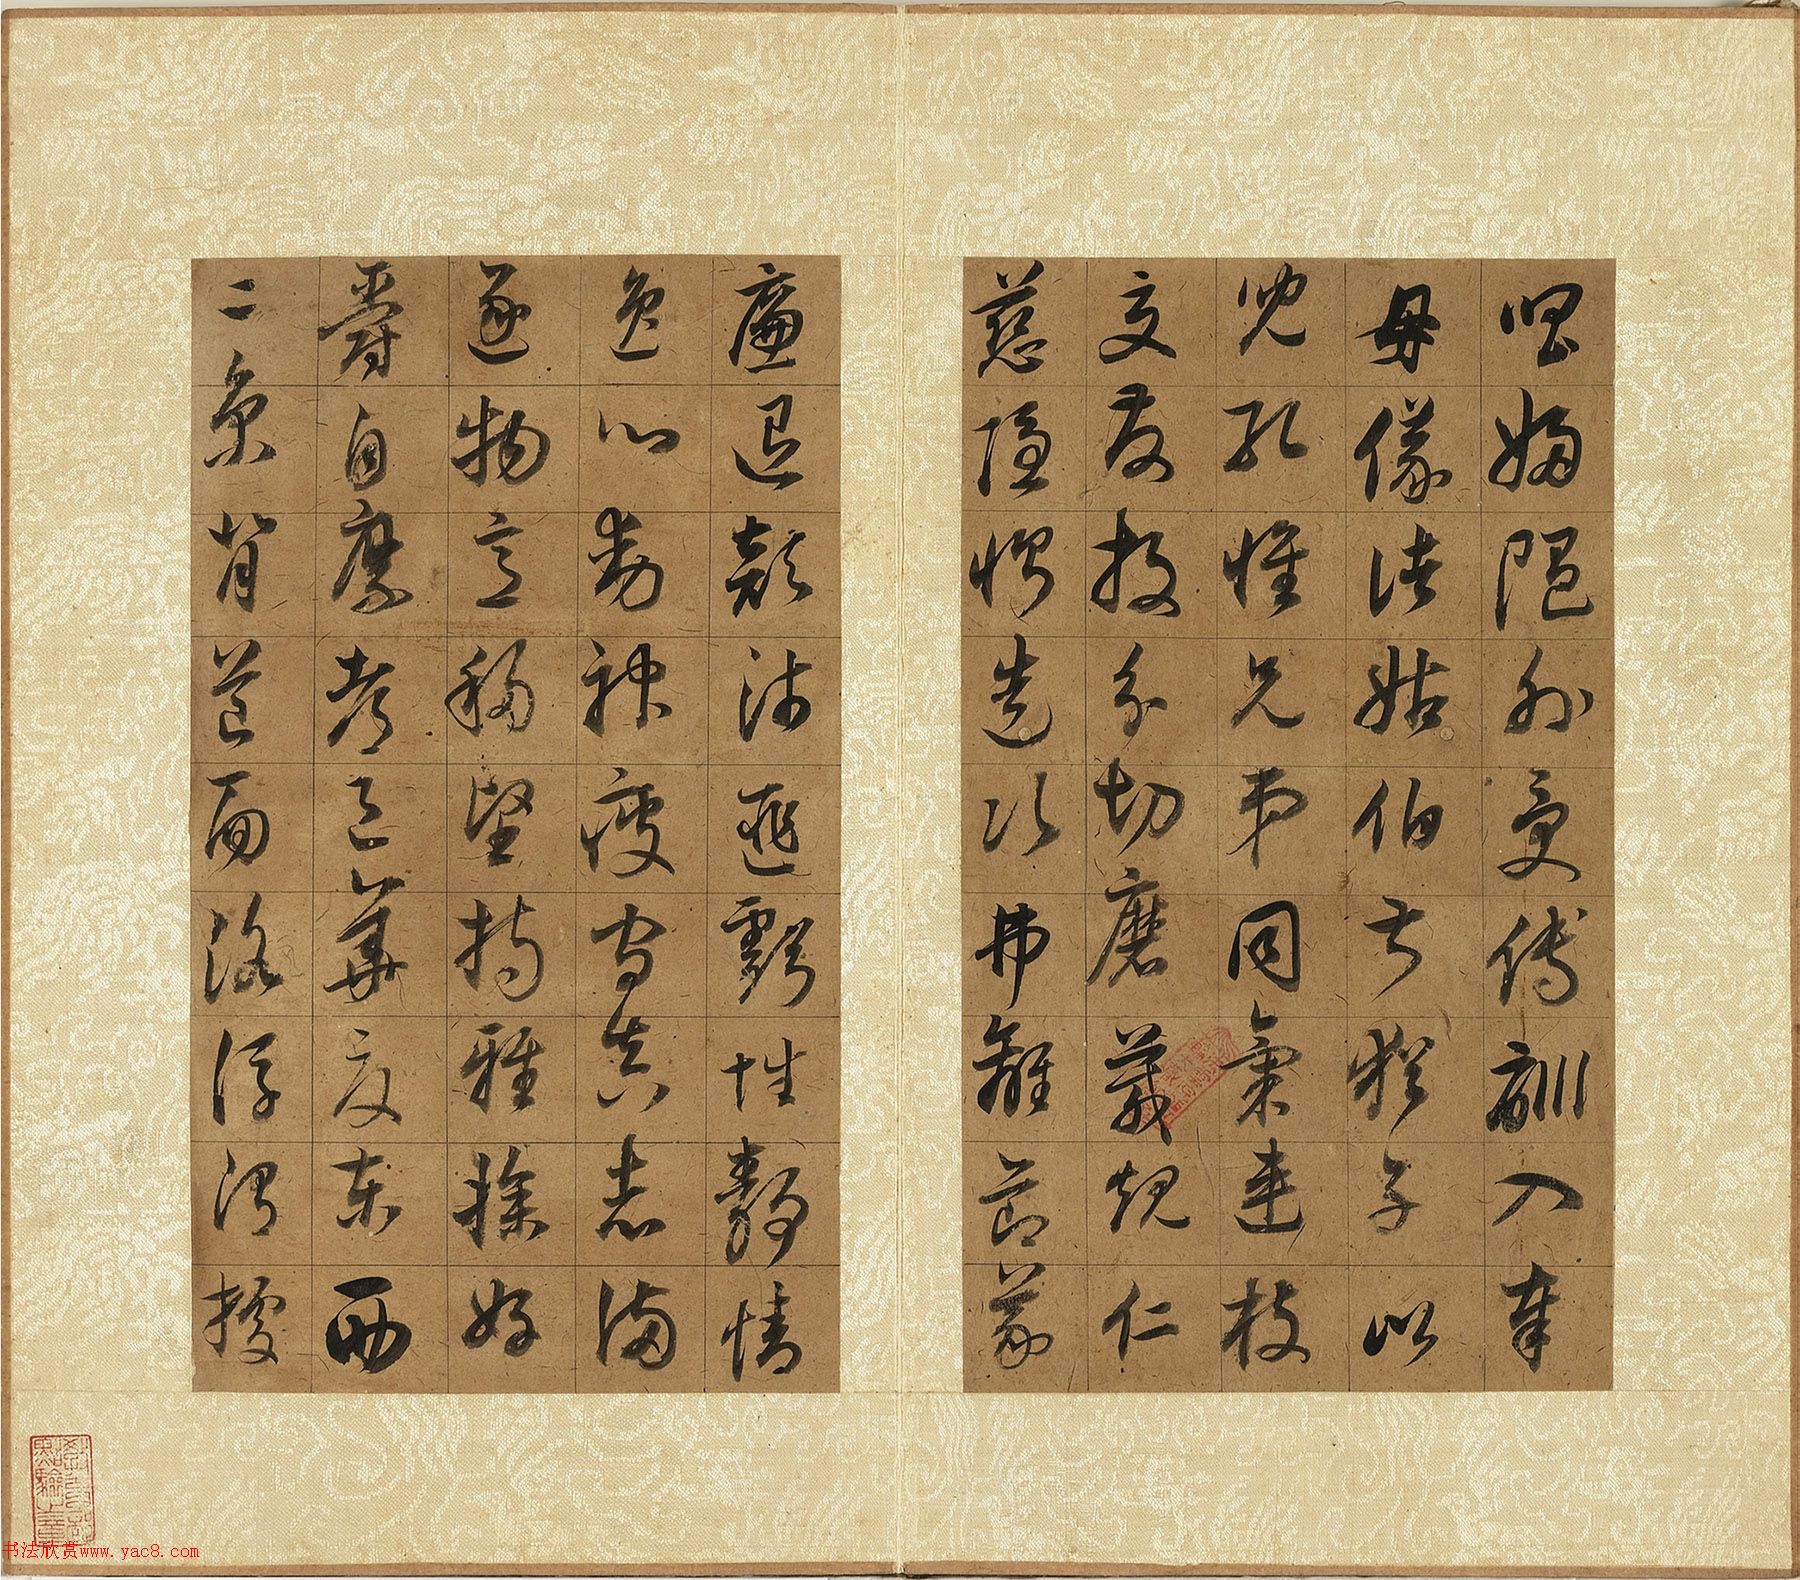 唱婦隨外受傅訓入奉
母儀諸姑伯叔猶子比
兒孔懷兄弟同氣連枝
交友投分切磨箴規仁
慈隱惻造次弗離節義
廉退顛沛匪虧性靜情
逸心動神疲守真志滿
逐物意移堅持雅操好
爵自縻都邑華夏東西
二京背芒面洛浮渭據
教育部
點驗之章
书法欣赏www.yac8.com